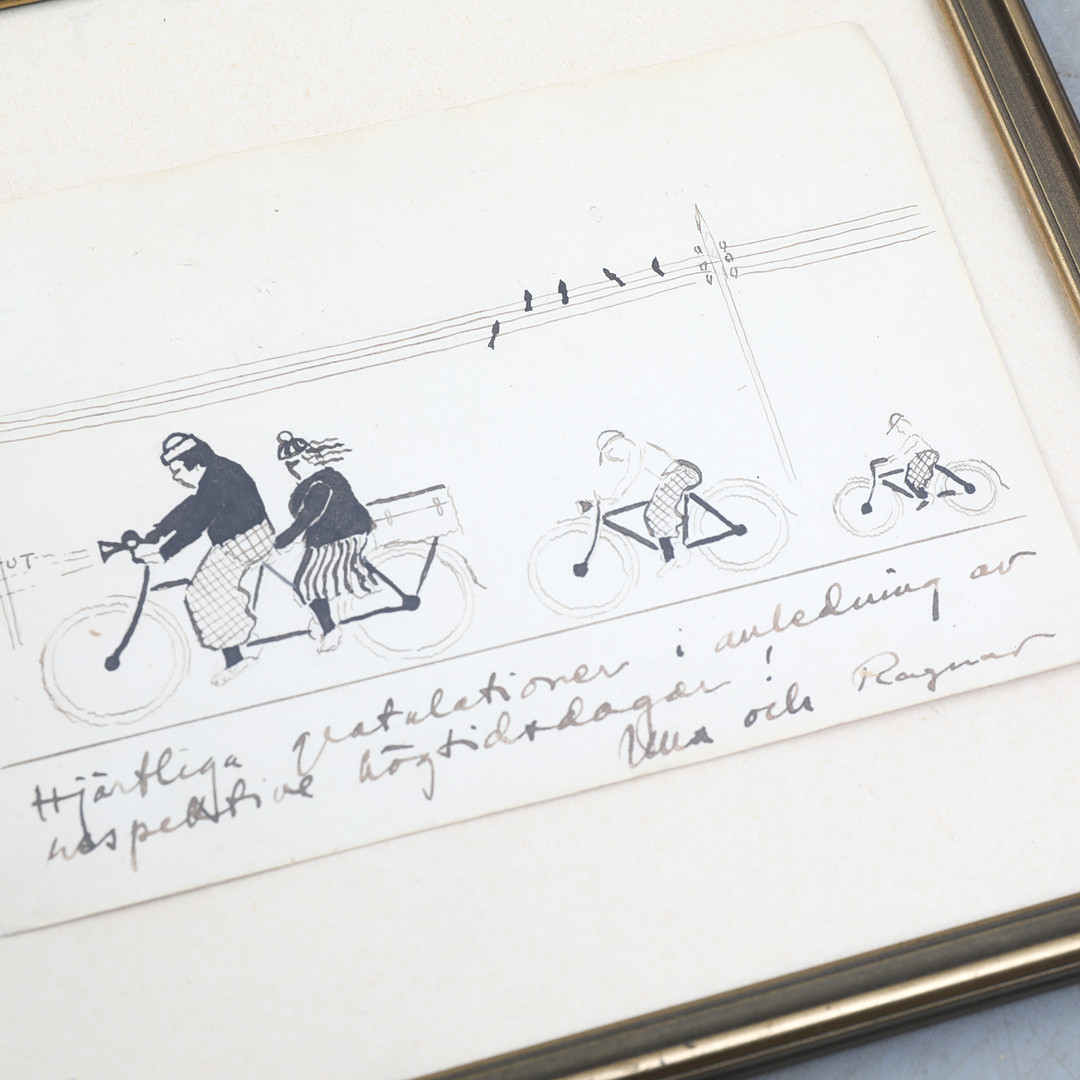 UT
Hjärtliga gratulationer i anledning av
respektive högtidsdagar!
och Ragnar